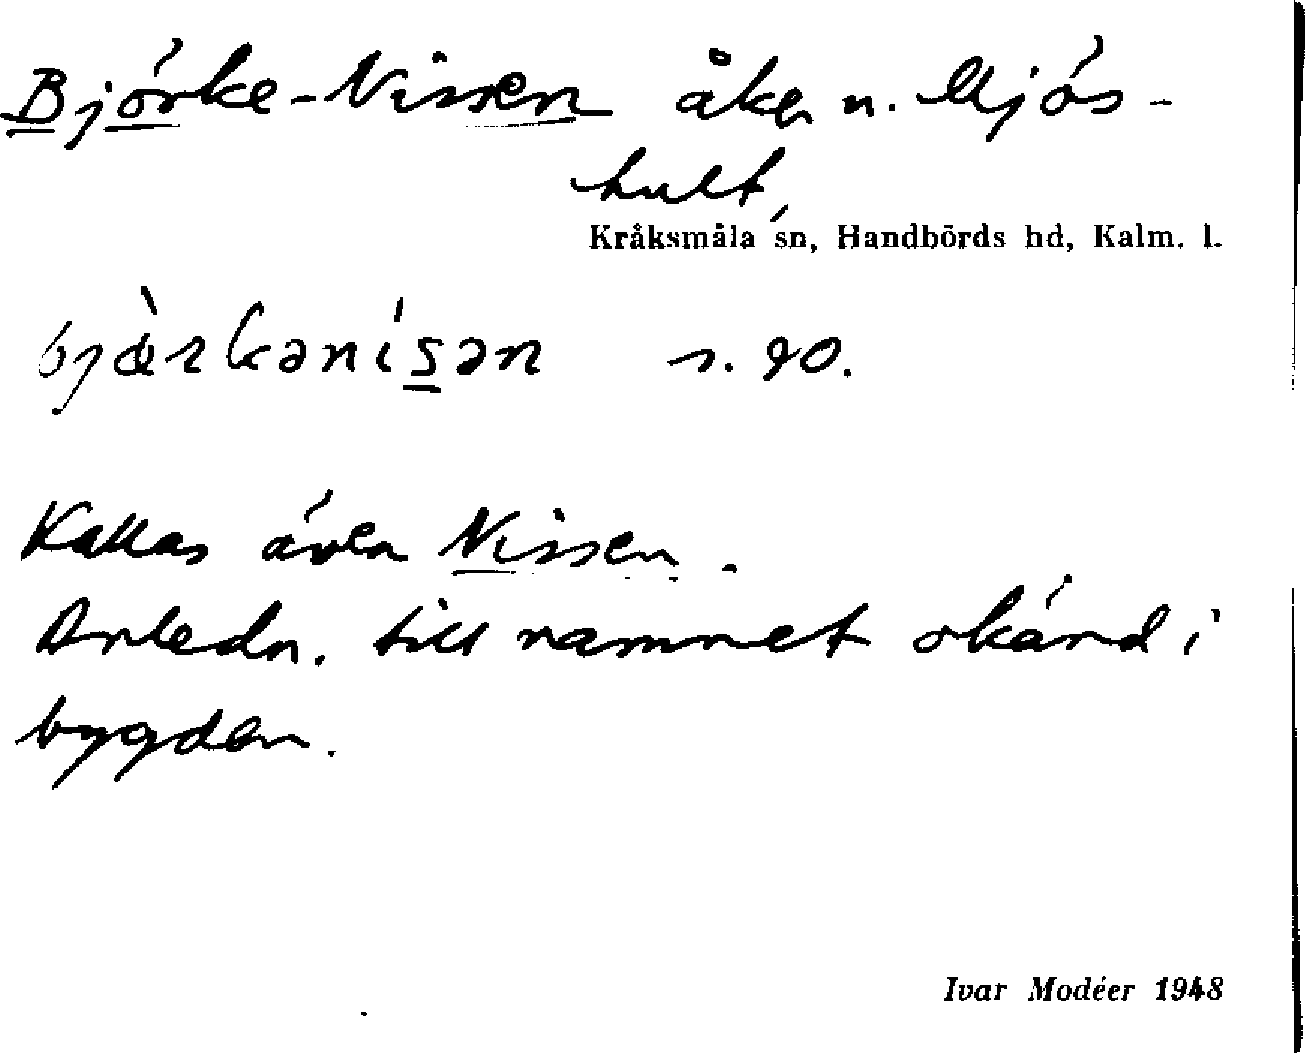 Björke-Nissen åker n. Mjös-
hult,
Kråksmåla sn, Handbörds hd, Kalm. l.
s. 90.
Kallas även Nissen.
Anledn. till namnet okänd i
bygden.
Ivar Modéer 1948